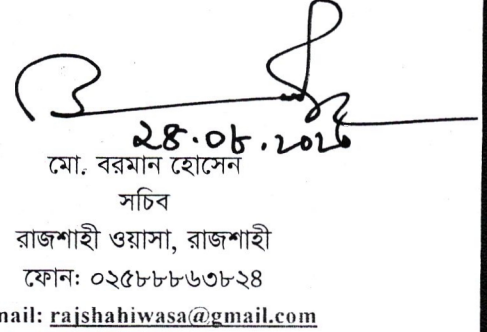 মো. বরমান হোসেন
সচিব
রাজশাহী ওয়াসা, রাজশাহী
ফোন: ০২৫৮৮৮৬৩৮২৪
nail: rajshahiwasa@gmail.com